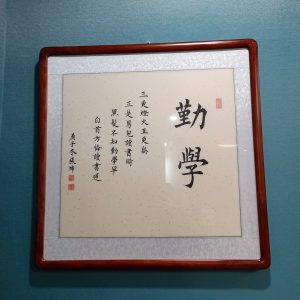 勤學
三更燈火五更雞
正是男兒讀書時
黑髮不知勤學早
白首方悔讀書遲
庚子冬